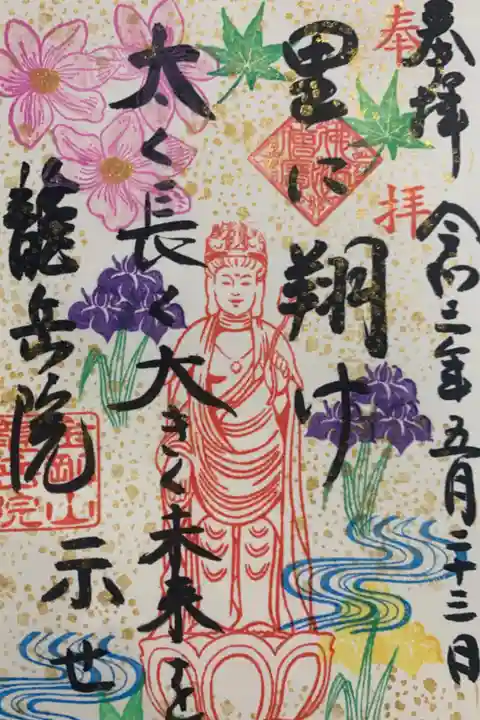 奉拝 令和三年五月二十三日
奉拝
里に翔け
太く長く大きく未来を
示せ
龍岳院